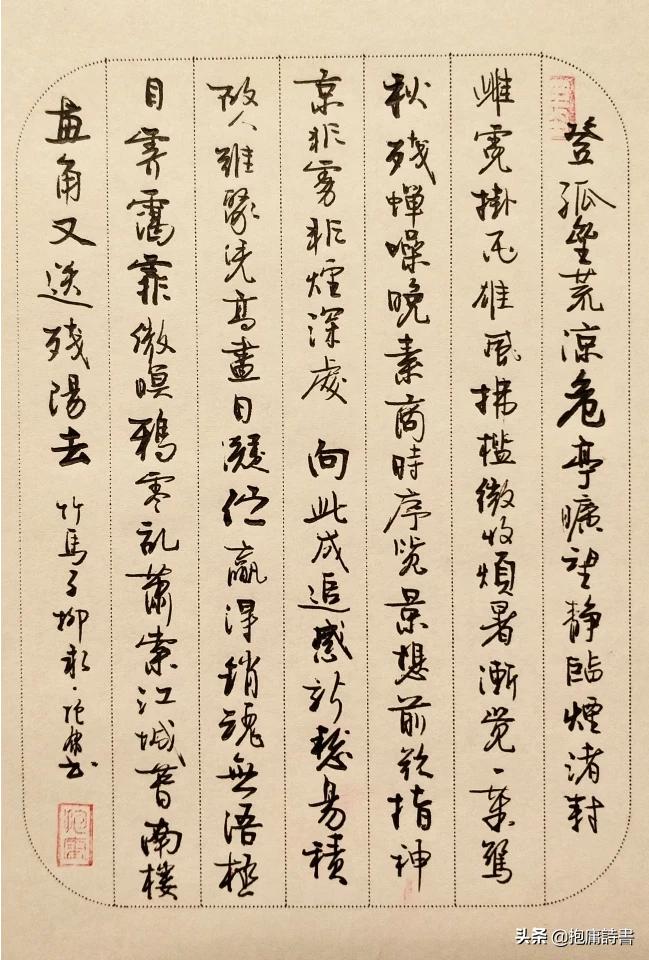 登孤壘荒涼危亭曠望静臨煙渚對
雌霓掛雨雄風拂檻微收煩暑漸覚一葉驚
秋殘蟬噪晚素商時序覽景想前歡指神
京非霧非煙深處 向此成追感新愁易積
故人難聚憑高盡日凝佇贏得銷魂無語極
目霽靄霏微暝鴉零亂蕭索江城暮南樓
畫角又送殘陽去 竹馬子柳永·抱庸書
抱庸
头条 @抱庸詩書